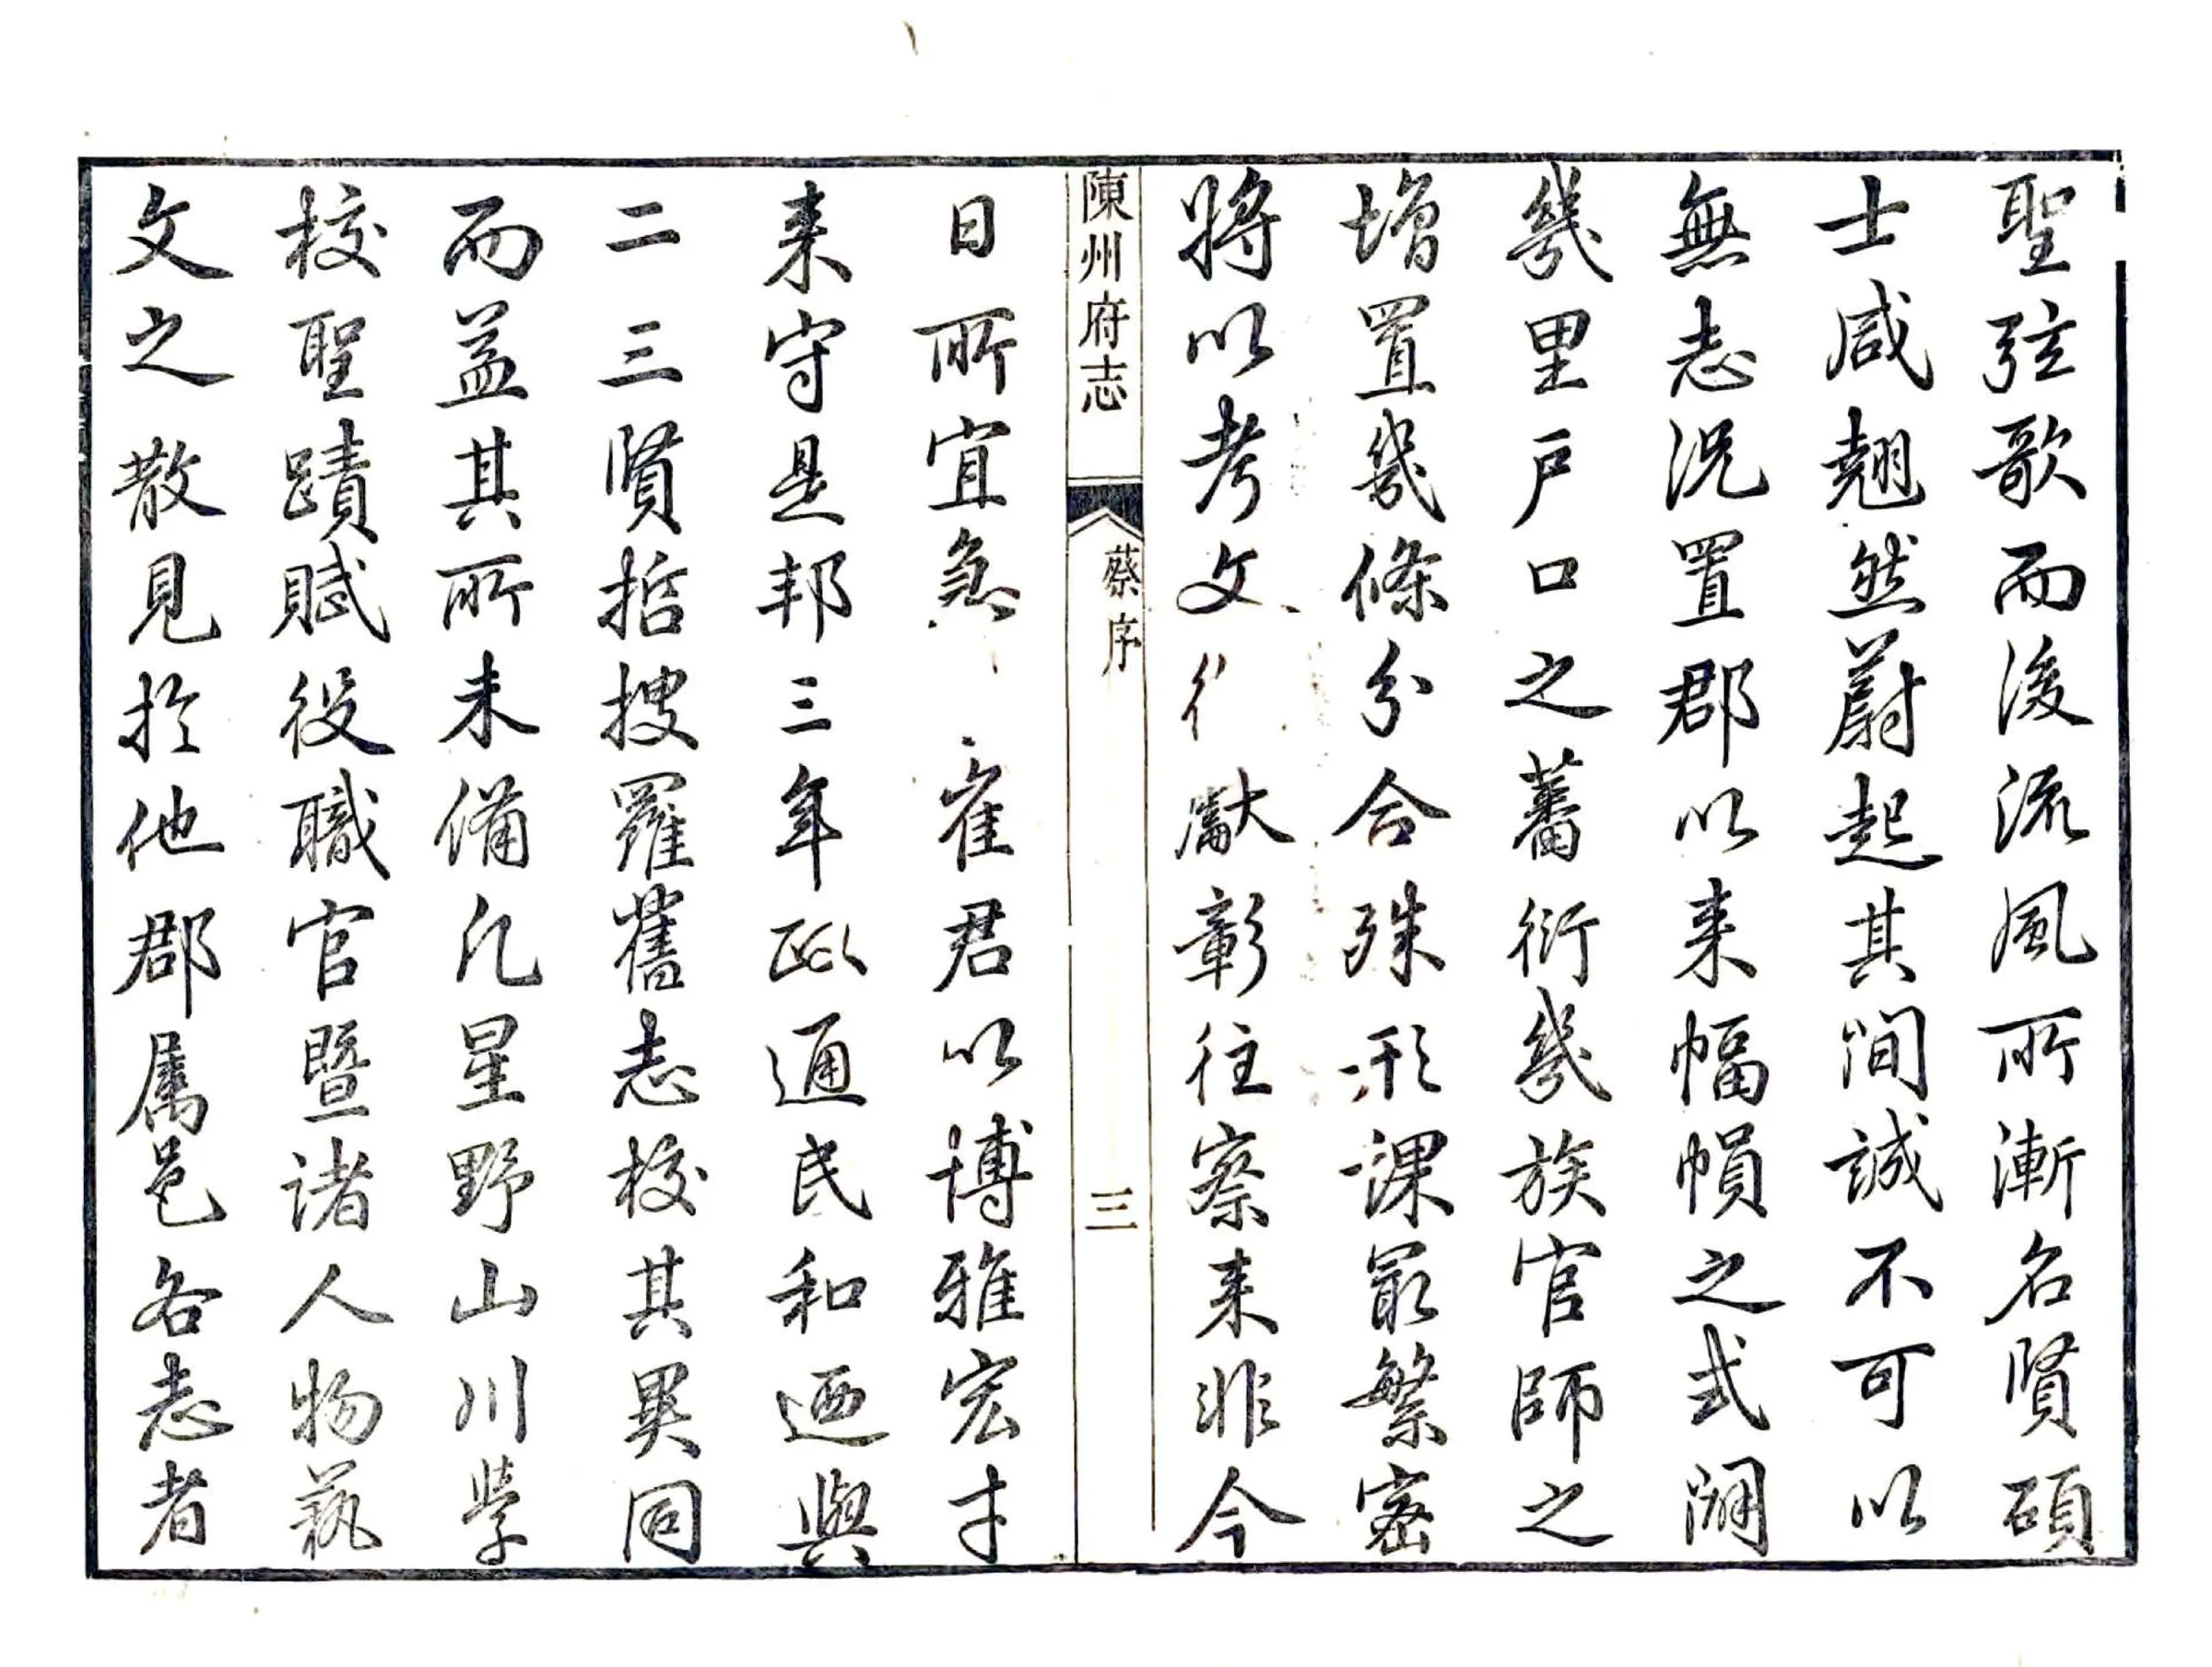 聖弦歌而後流風所漸名賢碩
士咸翹然蔚起其間誠不可以
無志況置郡以来幅幀之式闢
幾里戶口之蕃衍幾族官師之
增置幾條分合殊形課最繁密
將以考文獻彰往察来非今
陳州府志
蔡序
三
日所宜急崔君以博雅宏才
来守是邦三年政通民和迺與
二三賢哲搜羅舊志校其異同
而益其所未備凡星野山川學
校聖蹟賦役職官暨諸人物藝
文之散見於他郡属邑各志者